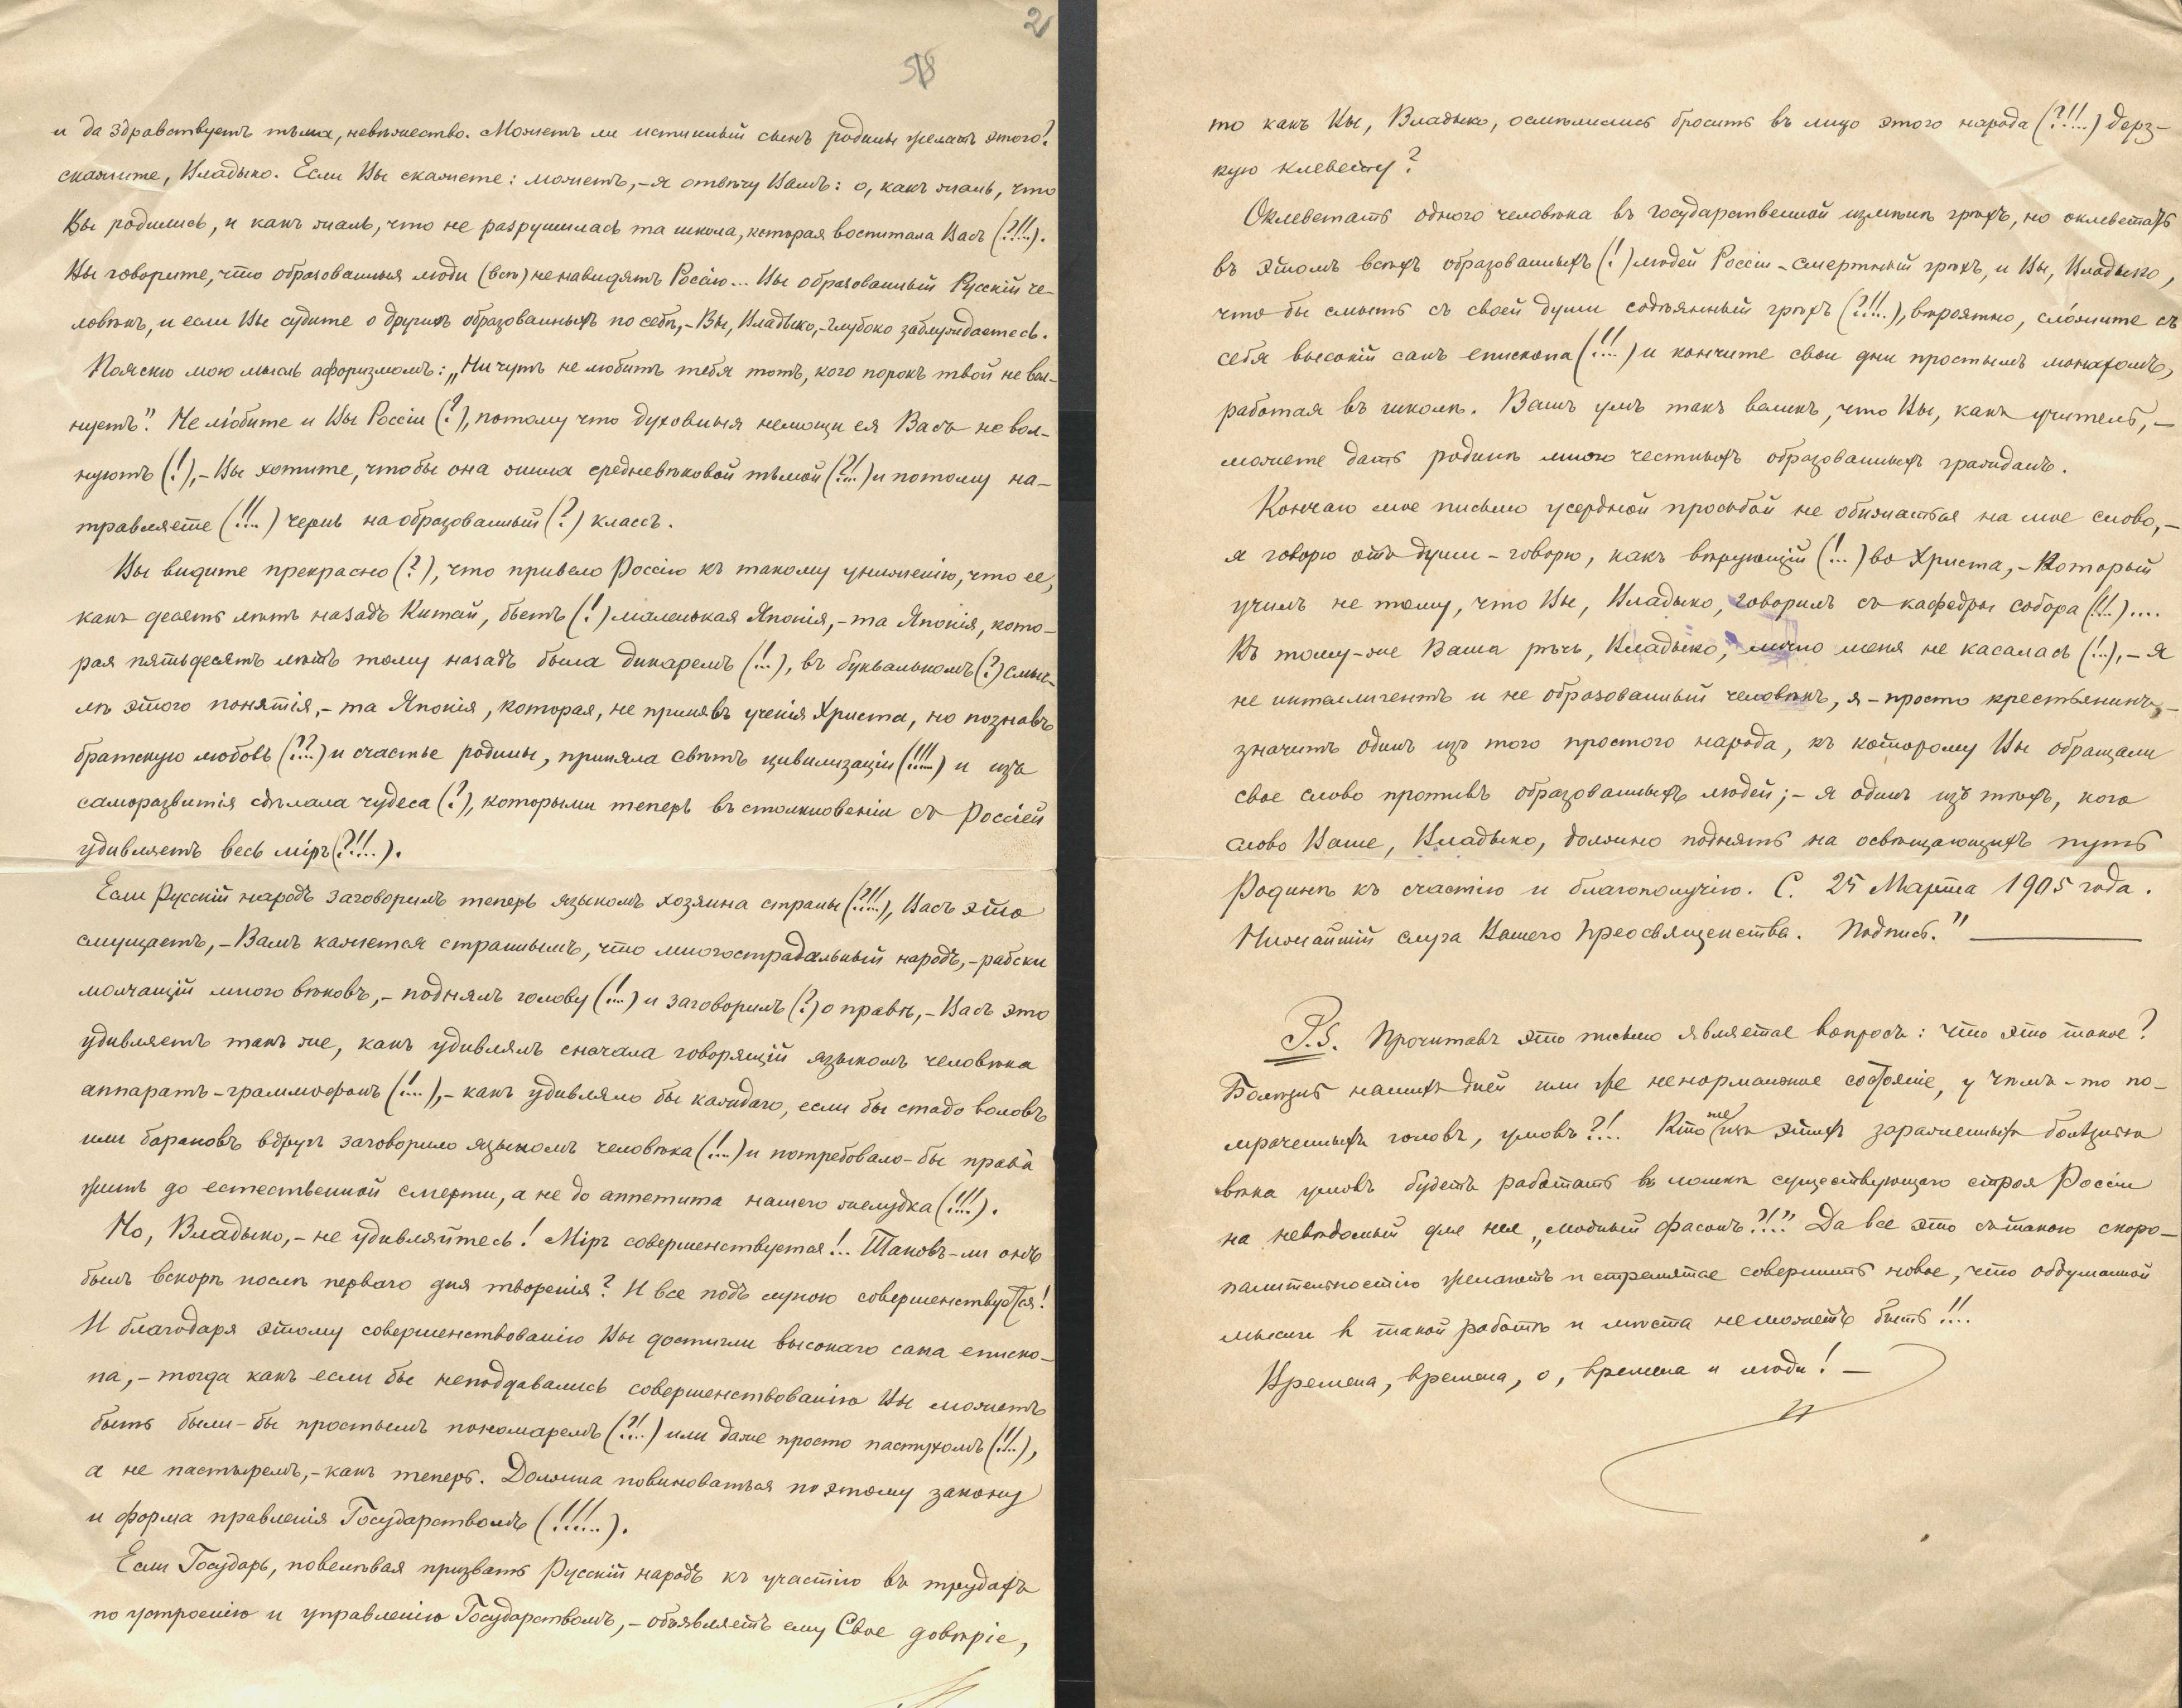 2
518
и да здравствуетъ тьма, невѣжество. Можетъ ли истинный сынъ родины желать этого?
скажите, Владыко. Если Вы скажете: можетъ, - я отвѣчу Вамъ: о, какъ жаль, что
Вы родились, и какъ жаль, что не разрушилась та школа, которая воспитала Васъ (?!!...).
Вы говорите, что образованныя люди (всѣ) ненавидятъ Россію... Вы образованный Русскій че-
ловѣкъ, и если Вы судите о другихъ образованныхъ по себѣ, - Вы, Владыко, - глубоко заблуждаетесь.
Поясню мою мысль афоризмомъ: „Ничуть не любитъ тебя тотъ, кого порокъ твой не вол-
нуетъ". Не любите и Вы Россіи (?), потому что духовныя немощи ея Васъ не вол-
нуютъ (!), - Вы хотите, чтобы она жила средневѣковой тьмой (?!...) и потому на-
травляете (!!...) чернь на образованный (?) классъ.
Вы видите прекрасно (?), что привело Россію къ такому униженію, что ее,
какъ десять лѣтъ назадъ Китай, бьетъ (!) маленькая Японія, - та Японія, кото-
рая пятьдесятъ лѣтъ тому назадъ была дикаремъ (!...), въ буквальномъ (?) смыс-
лѣ этого понятія, - та Японія, которая, не принявъ ученія Христа, но познавъ
братскую любовь (??...) и счастье родины, приняла свѣтъ цивилизаціи (!!!...) и изъ
саморазвитія сдѣлала чудеса (?), которыми теперь въ столкновеніи съ Россіей
удивляетъ весь міръ (?!!...).
Если Русскій народъ заговорилъ теперь языкомъ хозяина страны (?!!...), Васъ это
смущаетъ, - Вамъ кажется страшнымъ, что многострадальный народъ, - рабски
молчащій много вѣковъ, - поднялъ голову (!...) и заговорилъ (?) о правѣ, - Васъ это
удивляетъ такъ же, какъ удивлялъ сначала говорящій языкомъ человѣка
аппаратъ - граммофонъ (!...), - какъ удивляло бы каждаго, если бы стадо воловъ
или барановъ вдругъ заговорило языкомъ человѣка (!...) и потребовало-бы права
жить до естественной смерти, а не до аппетита нашего желудка (!!!...).
Но, Владыко, - не удивляйтесь! Міръ совершенствуется!.. Таковъ-ли онъ
былъ вскорѣ послѣ перваго дня творенія? И все подъ луною совершенствуется!
И благодаря этому совершенствованію Вы достигли высокаго сана еписко-
па, - тогда какъ если бы неподдавались совершенствованію Вы можетъ
быть были-бы простымъ пономаремъ (?!...) или даже просто пастухомъ (!!...),
а не пастыремъ, - какъ теперь. Должна повиноваться по этому закону
и форма правленія Государствомъ (!!!...).
Если Государь, повелѣвая призвать Русскій народъ къ участію въ трудахъ
по устроенію и управленію Государствомъ, - объявляетъ ему Свое довѣріе,
то какъ Вы, Владыко, осмѣлились бросить въ лицо этого народа (?!!...) дерз-
кую клевету?
Оклеветать одного человѣка въ государственной измѣнѣ грѣхъ, но оклеветать
въ этомъ всѣхъ образованныхъ (!) людей Россіи - смертный грѣхъ, и Вы, Владыко,
что бы смыть съ своей души содѣянный грѣхъ (?!!...), вѣроятно, сложите съ
себя высокій санъ епископа (!!...) и кончите свои дни простымъ монахомъ,
работая въ школѣ. Вашъ умъ такъ великъ, что Вы, какъ учитель, -
можете дать родинѣ много честныхъ образованныхъ гражданъ.
Кончаю мое письмо усердной просьбой не обижаться на мое слово, -
я говорю отъ души - говорю, какъ вѣрующій (!...) во Христа, - Который
училъ не тому, что Вы, Владыко, говорилъ съ кафедры собора (!!...)....
Къ тому-же Ваша рѣчь, Владыко, лично меня не касалась (!...), - я
не интеллигентъ и не образованный человѣкъ, я - просто крестьянинъ, -
значитъ одинъ изъ того простого народа, къ которому Вы обращали
свое слово противъ образованныхъ людей; - я одинъ изъ тѣхъ, кого
слово Ваше, Владыко, должно поднять на освѣщающихъ путь
Родинѣ къ счастію и благополучію. С. 25 Марта 1905 года.
Нижайшій слуга Вашего Преосвященства. Подпись."
P.S. Прочитавъ это письмо является вопросъ: что это такое?
Болѣзнь нашихъ дней или же ненормальное состояніе, у чѣмъ-то по-
мраченныхъ головъ, умовъ?!.. Кто же изъ этихъ зараженныхъ болѣзнью
вѣка умовъ будетъ работать въ ломкѣ существующаго строя Россіи
на невѣдомый для нея „модный фасонъ?!.." Да все это съ такою скоро-
палительностію желаютъ и стремятся совершить новое, что обдуманной
мысли в такой работѣ и мѣста неможетъ быть!!...
Времена, времена, о, времена и люди! -